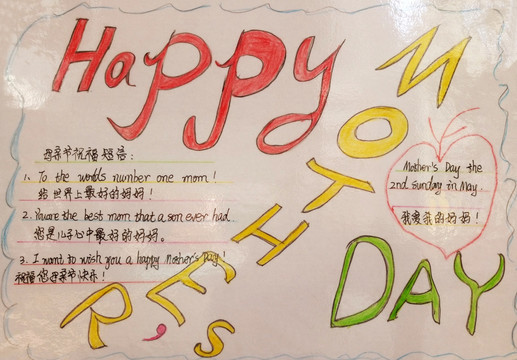 Happy
MOTHER'S
DAY
母亲节祝福短语:
1. To the worlds number one mom!
给世界上最好的妈妈!
2. Youare the best mom that a son ever had.
您是儿子心中最好的妈妈.
3. I want to wish you a happy Mother's Day!
祝福您母亲节快乐!
Mother's Day the
2nd sunday in May.
我爱我的妈妈!